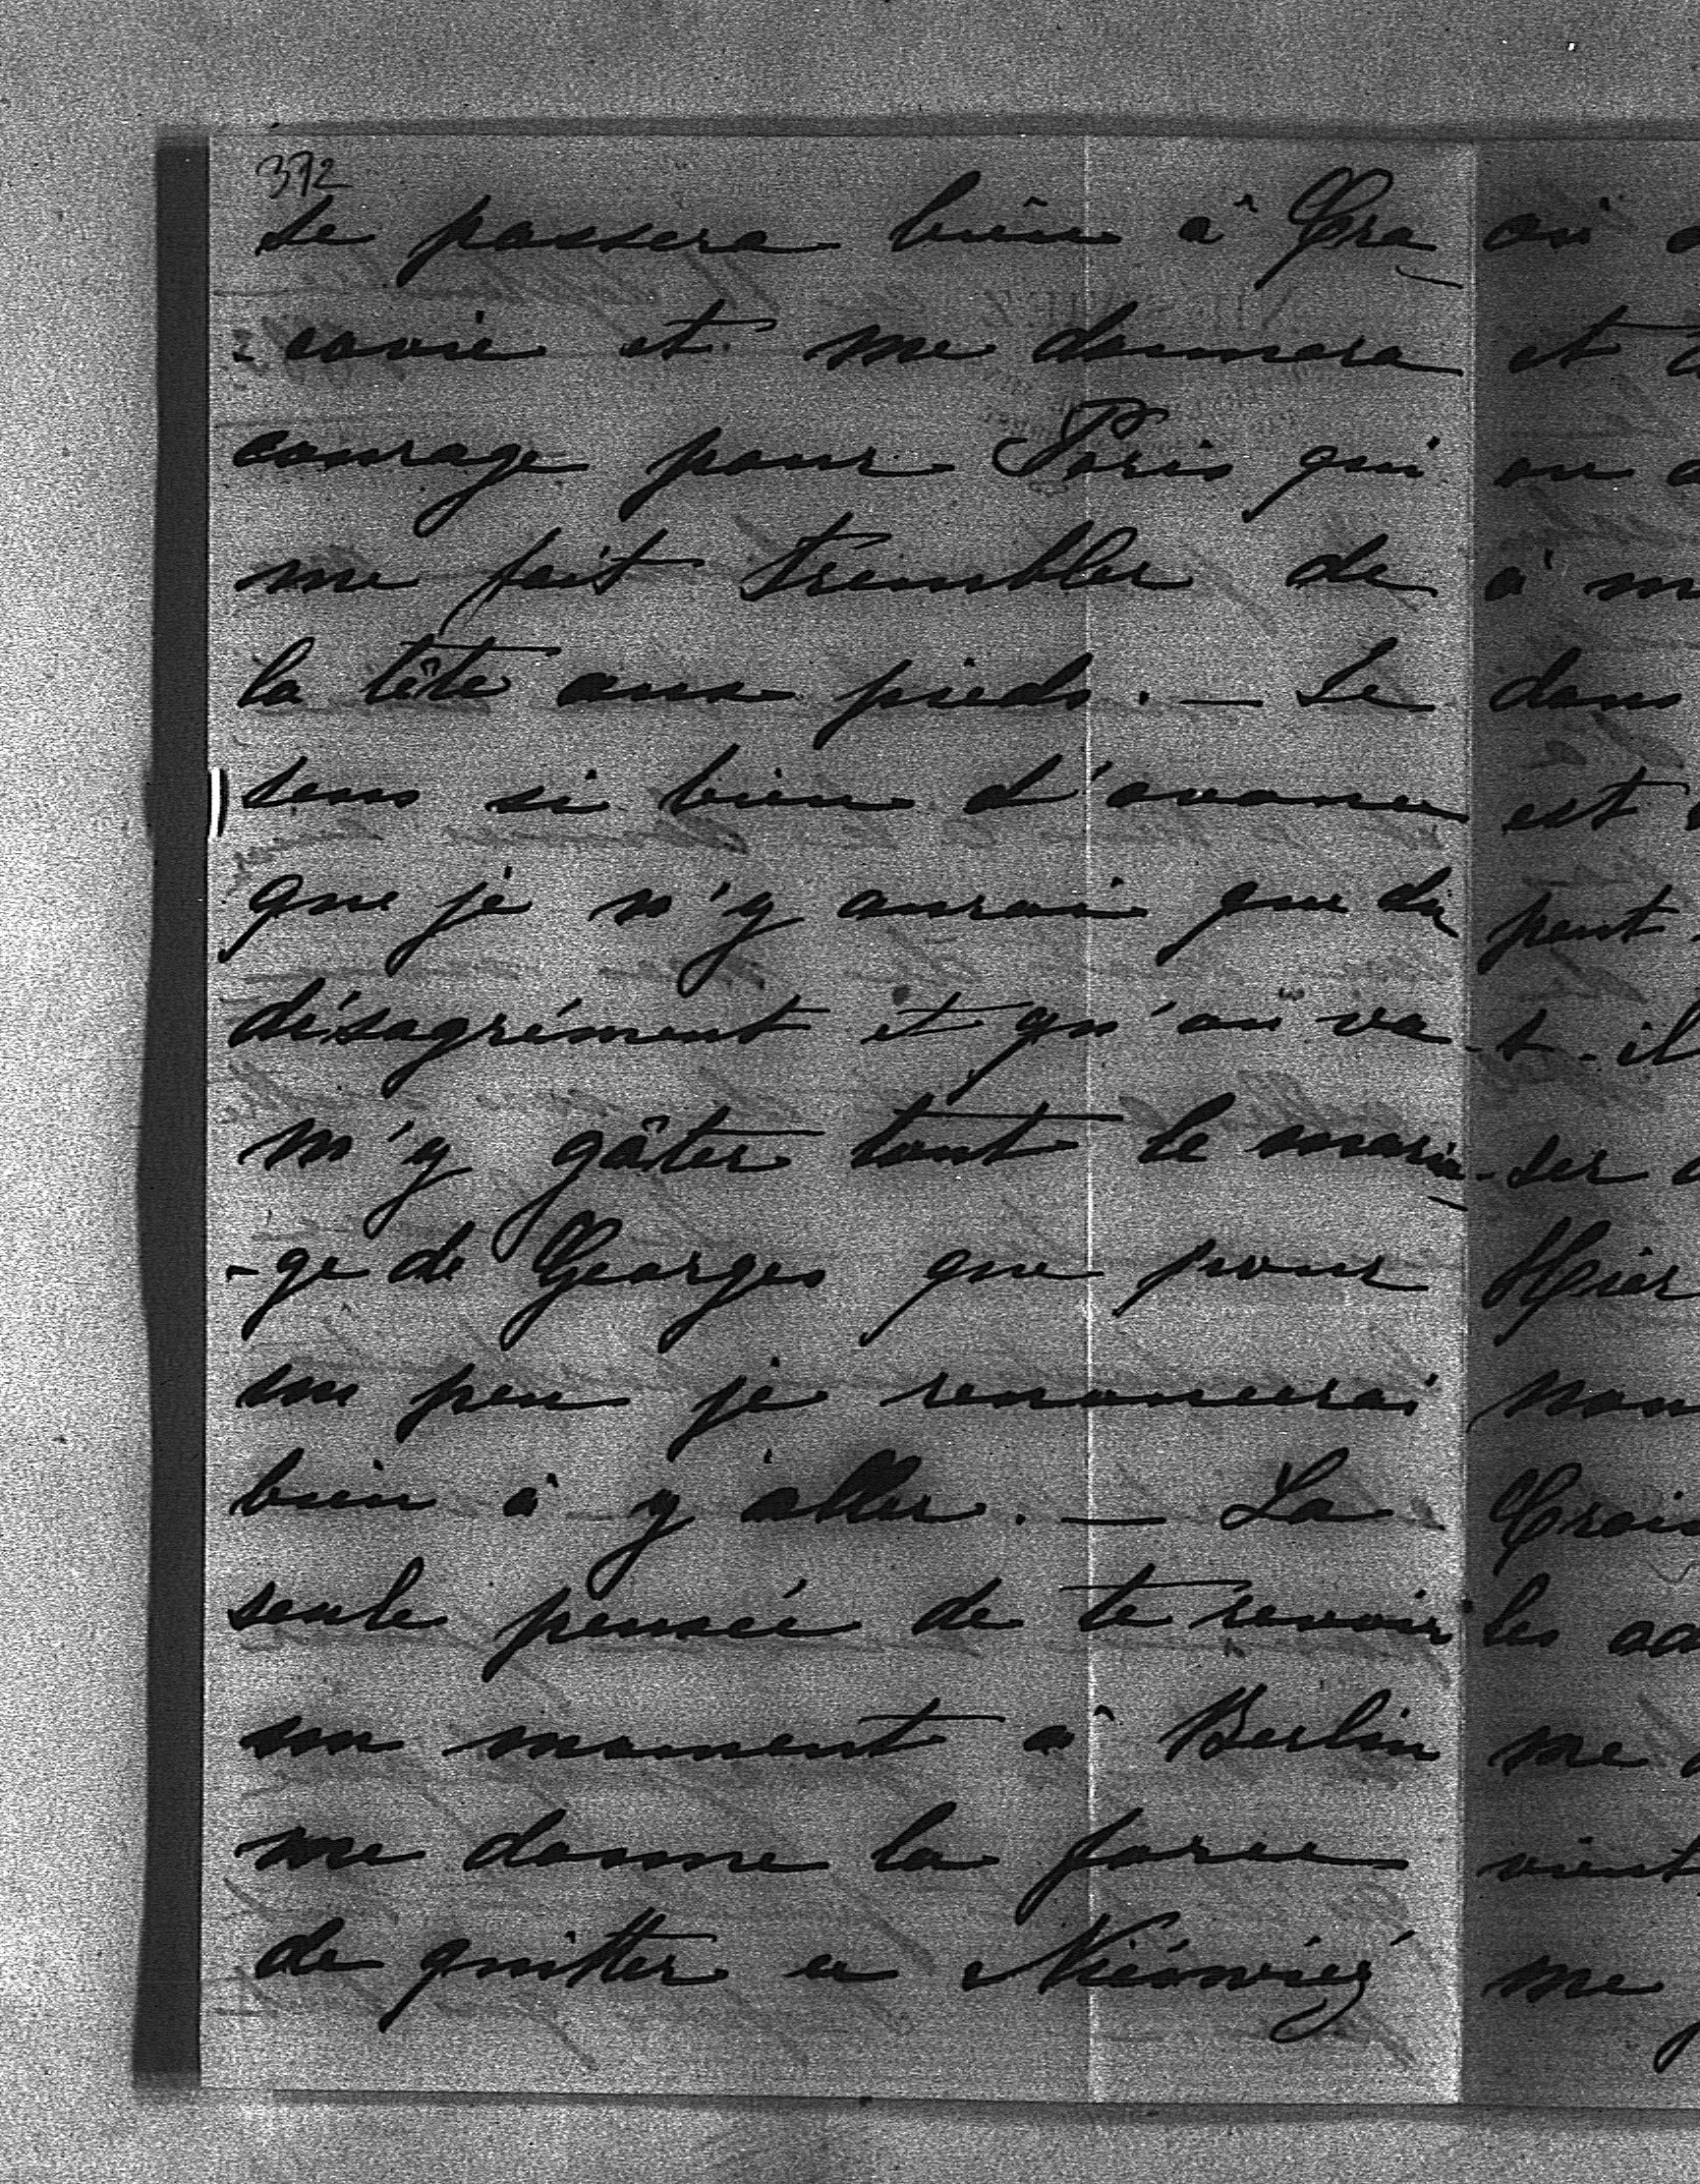 372
se passera bien à Cra-
-covie et me donnera
courage pour Paris qui
me fait trembler de
la tête aux pieds. — Je
sens si bien d'avance
que je n'y aurai que du
désagrément et qu'on va
m'y gâter tout le maria-
-ge de Georges que pour
un peu je renoncerai
bien à y aller. — La
seule pensée de te revoir
un moment à Berlin
me donne la force
de quitter ce Niéswiéz
où
et
on
à
dans
est
peut-
-t-il
-ser
Hier
nou
Crois
les
me
vient
me